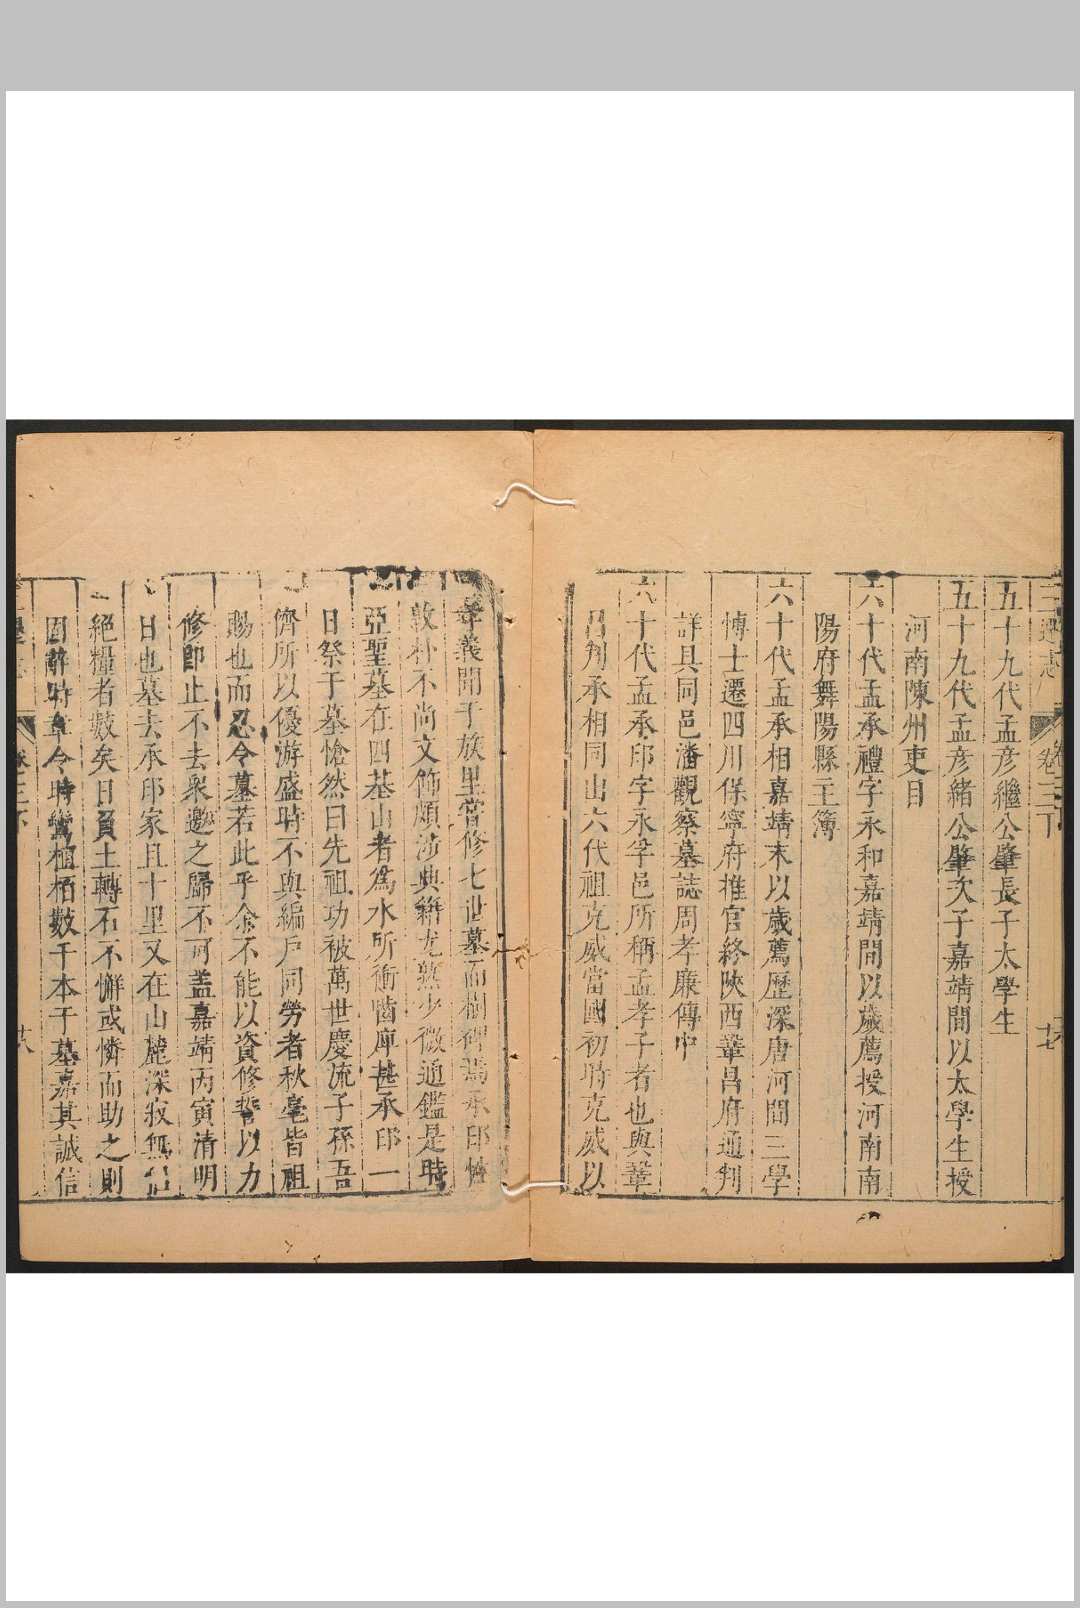 三遷志 卷三下 十七
五十九代孟彦繼公肇長子太學生
五十九代孟彦緒公肇次子嘉靖間以太學生授
河南陳州吏目
六十代孟承禮字永和嘉靖間以歲薦授河南南
陽府舞陽縣主簿
六十代孟承相嘉靖末以歲薦歷深唐河間三學
博士遷四川保寧府推官終陝西鞏昌府通判
詳具同邑潘觀察墓誌周孝廉傳中
六十代孟承印字永孚邑所稱孟孝子者也與鞏
昌判承相同出六代祖克威當國初時克威以
孝義聞于族里嘗修七世墓而樹碑焉承印性
敦朴不尚文飾頗涉典籍尤熟少微通鑑是時
亞聖墓在四基山者為水所衝嚙庫甚承印一
日祭于墓愴然曰先祖功被萬世慶流子孫吾
儕所以優游盛時不與編戶同勞者秋毫皆祖
賜也而忍令墓若此乎余不能以資修誓以力
修即止不去衆邀之歸不可盖嘉靖丙寅清明
日也墓去承印家且十里又在山麓深寂無
絕糧者數矣日負土轉石不懈或憐而助之則
固辭時章令時鸞植栢數千本于墓嘉其誠信
卷三下 十八